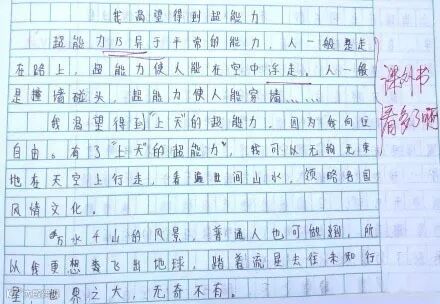 我渴望得到超能力
超能力乃异于平常的能力，人一般是走
在路上，超能力使人能在空中浮走。人一般
是撞墙碰头，超能力使人能穿墙……
我渴望得到"上天"的超能力，因为我向往
自由。有了"上天"的超能力，我可以无拘无束
地在天空上行走，看遍世间山水，领略各国
风情文化。
万水千山的风景，普通人也可做到，所
以我更想要飞出地球，踏着流星去往未知行
星，世界之大，无奇不有。
课外书
看多了啊